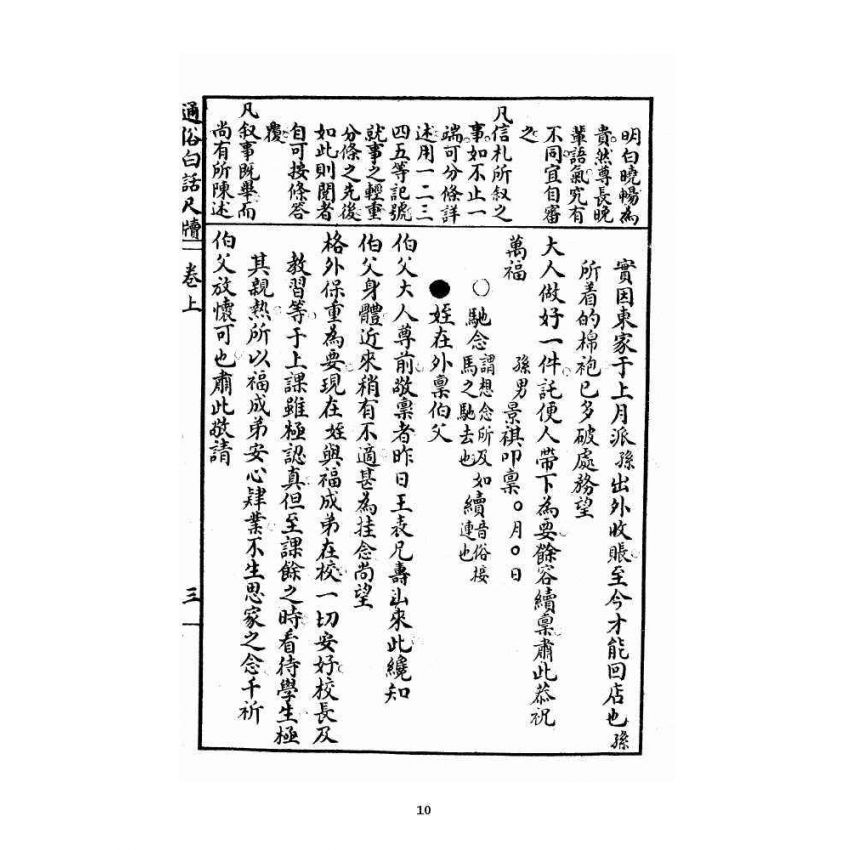 明白曉暢為
貴然尊長晚
輩語氣究有
不同宜自審
之
凡信札所叙之
事如不止一
端可分條詳
述用一二三
四五等記號
就事之輕重
分條之先後
如此則閱者
自可按條答
覆
凡叙事既畢而
尚有所陳述
實因東家于上月派孫出外收賬至今才能回店也孫
所着的棉袍已多破處務望
大人做好一件託便人帶下為要餘容續稟肅此恭祝
萬福
孫男景祺叩稟〇月〇日
〇馳念謂想念所及如馬之馳去也續音俗接連也
●姪在外稟伯父
伯父大人尊前敬稟者昨日王表兄壽山來此纔知
伯父身體近來稍有不適甚為挂念尚望
格外保重為要現在姪與福成弟在校一切安好校長及
教習等于上課雖極認真但至課餘之時看待學生極
其親熱所以福成弟安心肄業不生思家之念千祈
伯父放懷可也肅此敬請
通俗白話尺牘 卷上 三
10